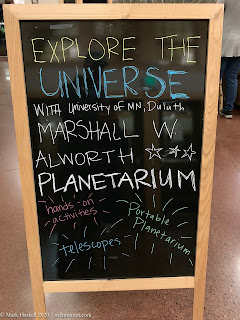 EXPLORE THE
UNIVERSE
WITH University of MN, Duluth
MARSHALL W.
ALWORTH
PLANETARIUM
hands-on
activities
Portable
Planetarium
telescopes